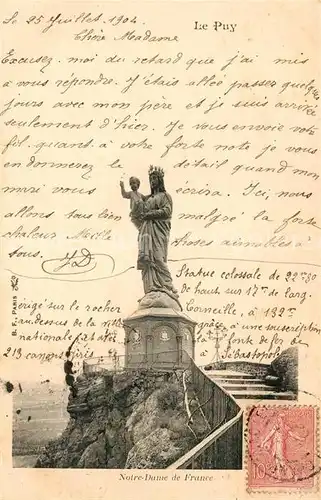 Le 25 Juillet 1904
Le Puy
Chère Madame
Excusez-moi du retard que j'ai mis
à vous répondre. J'étais allée passer quelques
jours avec mon père et je suis arrivée
seulement d'hier. Je vous envoie votre
fil. quant à votre forte note je vous
en donnerez le détail quand mon
mari vous écrira. Ici, nous
allons tous bien malgré la forte
chaleur Mille choses aimables à
tous. JD
Statue colossale de 22m30
de haut sur 17m de larg.
érigé sur le rocher Corneille, à 132m
au dessus de la ville grâce à une souscription
nationale et à la fonte de fer de
213 canons pris à Sébastopol
B. F., Paris
10
Notre-Dame de France